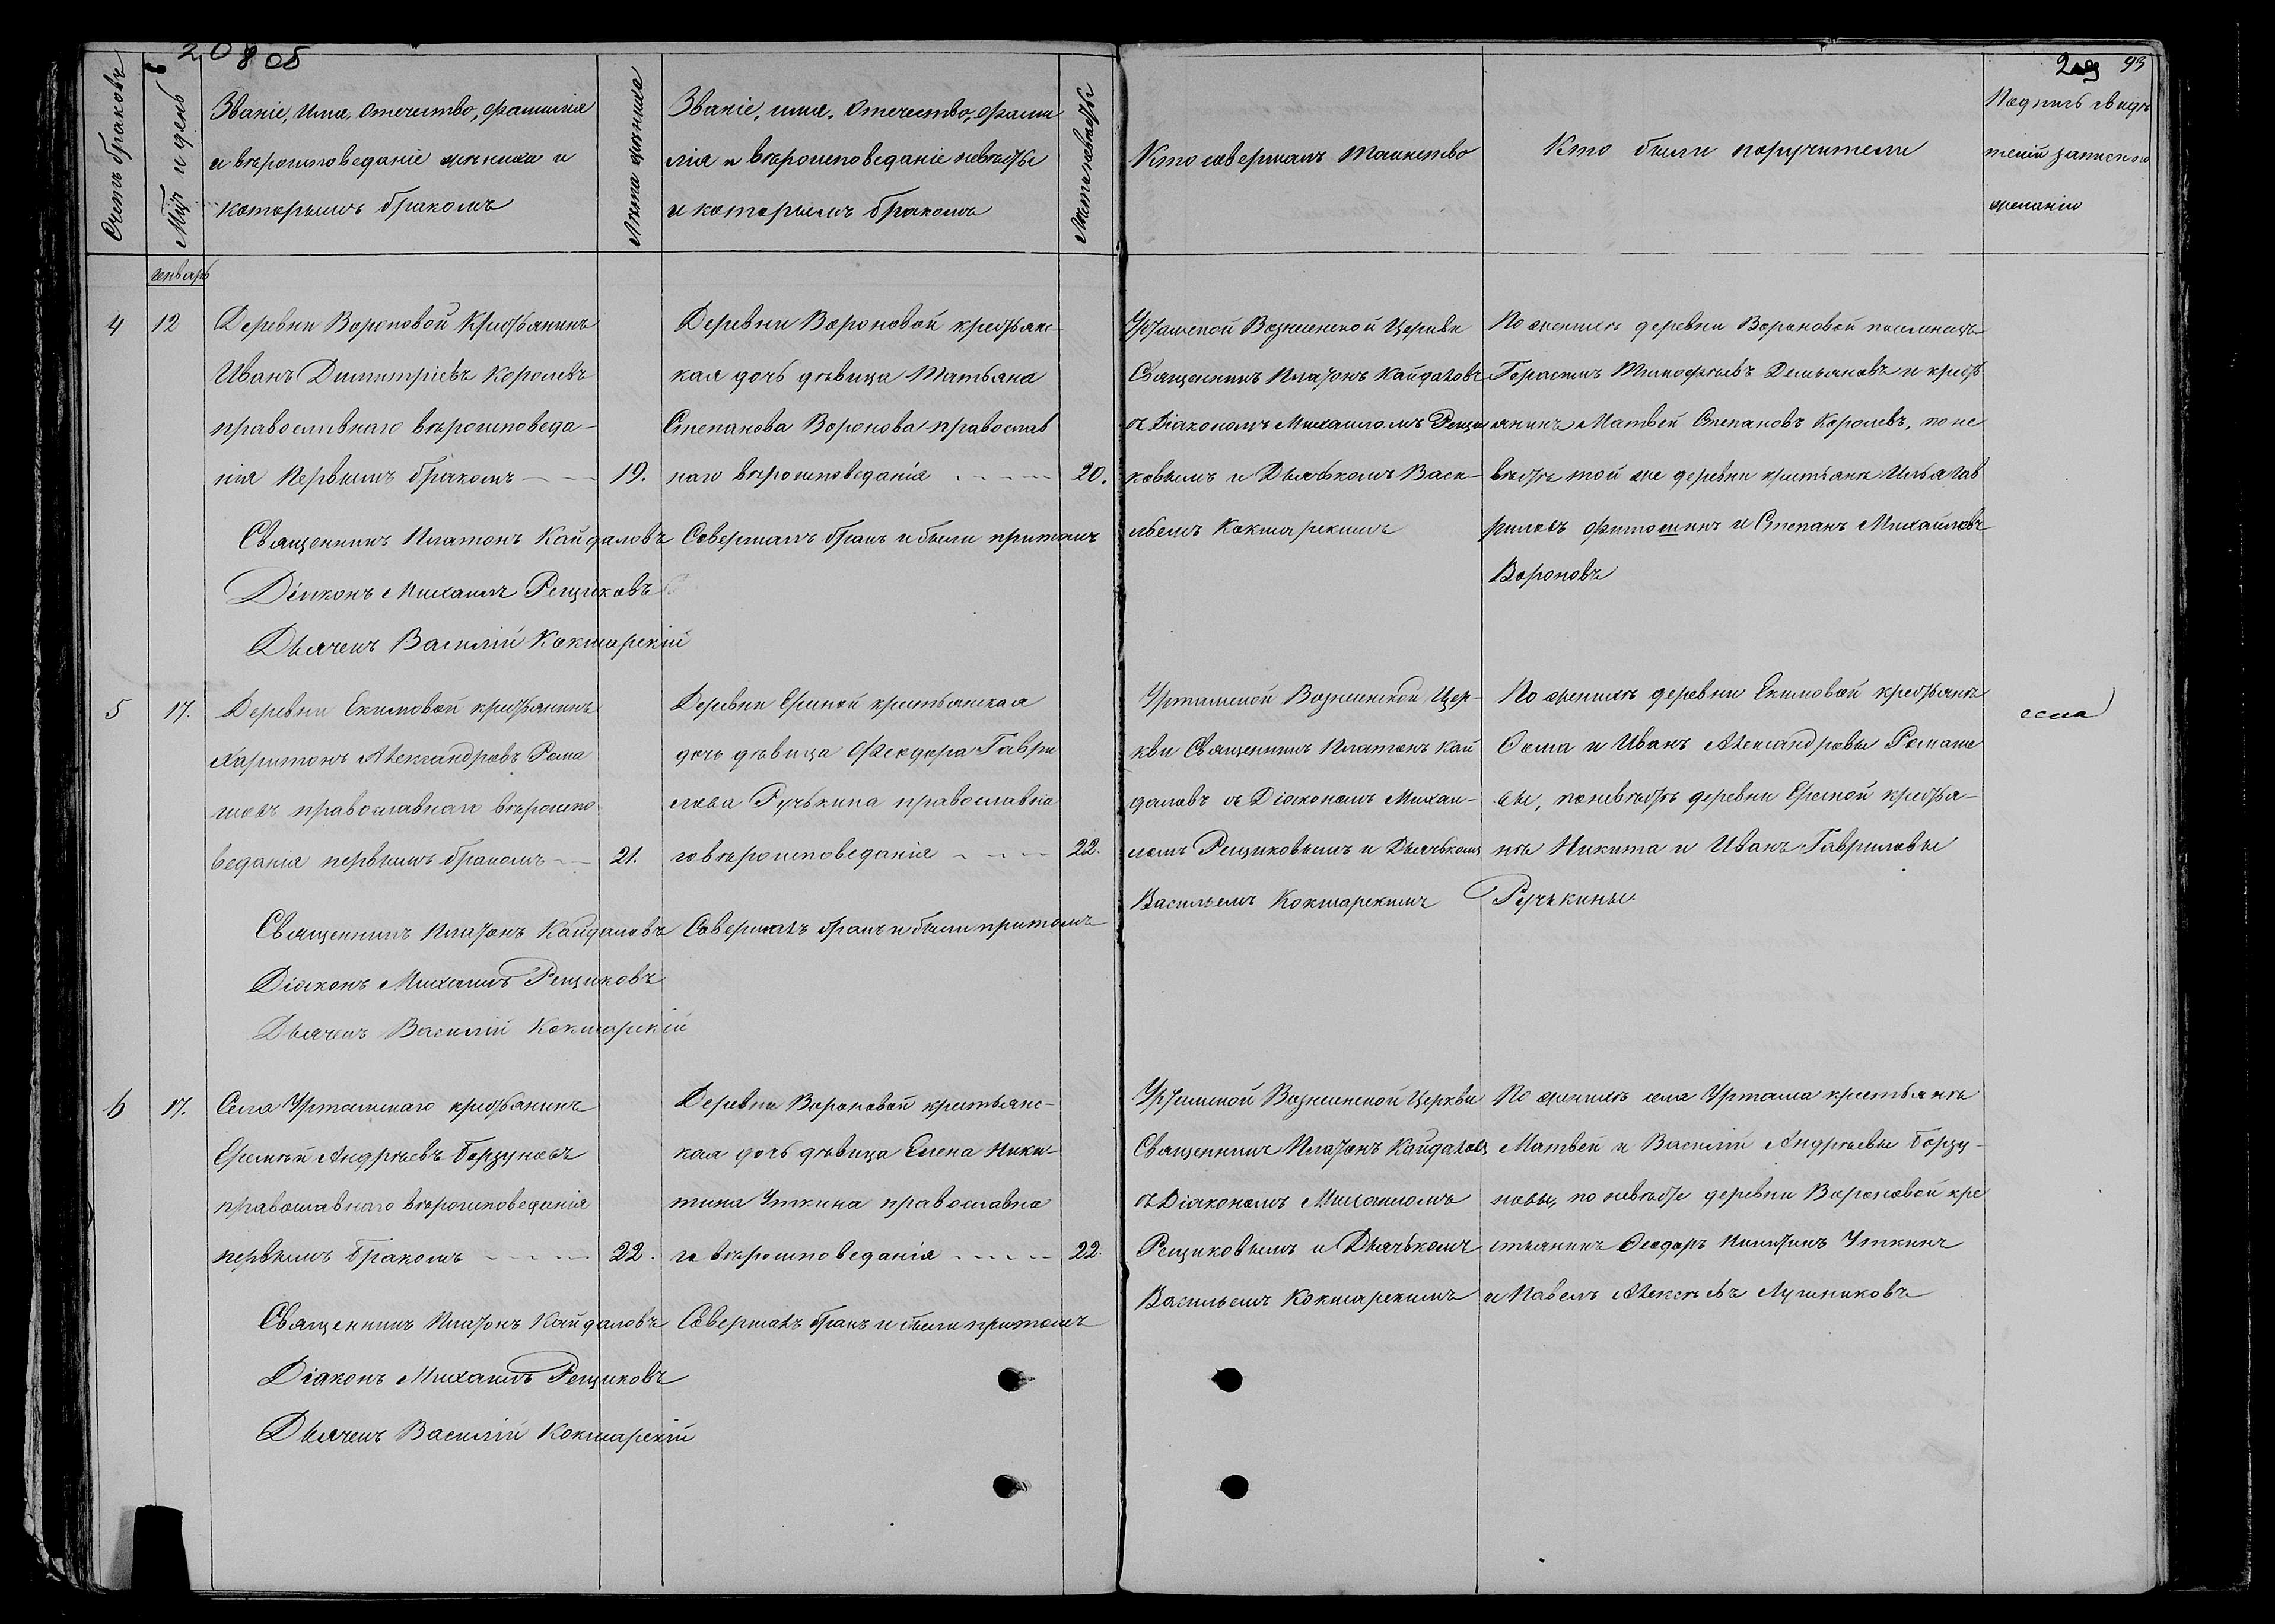 20805
93
Счетъ браковъ
Мцъ и день
Званіе, имя, отечество, фамилія
и вѣроисповеданіе жениха и
которымъ бракомъ
Лѣта жениха
Званіе, имя, отечество, фами
лія и вѣроисповеданіе невѣсты
и которымъ бракомъ
Лѣта невѣсты
Кто совершалъ таинство
Кто были поручители
Подпись свидѣ
телей записи по
желанію
генварь
4
12
Деревни Вороновой Крестьянинъ
Иванъ Димитріевъ Королевъ
православнаго вѣроисповеда-
нія первымъ бракомъ
19.
Деревни Вороновой крестьянс-
кая дочь дѣвица Татьяна
Степанова Воронова православ
наго вѣроисповеданія
20.
Уртамской Вознесенской Церкви
Священникъ Платонъ Кайдаловъ
съ Діакономъ Михаиломъ Рещи
ковымъ и Дьячькомъ Васи-
льемъ Кокшарскимъ
По женихѣ деревни Вороновой поселенецъ
Герасимъ Тимофѣевъ Демьяновъ и кресть
янинъ Матвей Степановъ Королевъ, по не
вѣстѣ той же деревни крестьяне Илья Гав
риловъ и Степанъ Михайловъ
Вороновъ
Священникъ Платонъ Кайдаловъ Совершалъ бракъ и были притомъ
Діаконъ Михаилъ Рещиковъ
Дьячекъ Василій Кокшарскій
5
17.
Деревни Екимовой крестьянинъ
Харитонъ Александровъ Рома
шовъ православнаго вѣроиспо
веданія первымъ бракомъ
21.
Деревни Еремой крестьянская
дочь дѣвица Феодора Гаври
лова Ручькина православна
го вѣроисповеданія
22.
Уртамской Вознесенской Цер-
кви Священникъ Платонъ Кай
даловъ съ Діакономъ Михаи-
ломъ Рещиковымъ и Дьячькомъ
Васильемъ Кокшарскимъ
По женихѣ деревни Екимовой крестьяне
Ѳома и Иванъ Александровы Ромашо
вы, по невѣстѣ деревни Еремой крестья-
не Никита и Иванъ Гавриловы
Ручькины.
Священникъ Платонъ Кайдаловъ Совершалъ бракъ и были притомъ
Діаконъ Михаилъ Рещиковъ
Дьячекъ Василій Кокшарскій
6
17.
Села Уртамскаго крестьянинъ
Еремѣй Андрѣевъ Борзуновъ
православнаго вѣроисповеданія
первымъ бракомъ
22.
Деревни Вороновой крестьянс-
кая дочь дѣвица Елена Ники-
тина Уткина православна
го вѣроисповеданія
22.
Уртамской Вознесенской Церкви
Священникъ Платонъ Кайдаловъ
съ Діакономъ Михаиломъ
Рещиковымъ и Дьячькомъ
Васильемъ Кокшарскимъ
По женихѣ села Уртама крестьяне
Матвей и Василій Андрѣевы Борзу-
новы, по невѣстѣ деревни Вороновой кре
стьянинъ Ѳеодоръ Никитинъ Уткинъ
и Павелъ Алексѣевъ Лушниковъ
Священникъ Платонъ Кайдаловъ Совершалъ бракъ и были притомъ
Діаконъ Михаилъ Рещиковъ
Дьячекъ Василій Кокшарскій